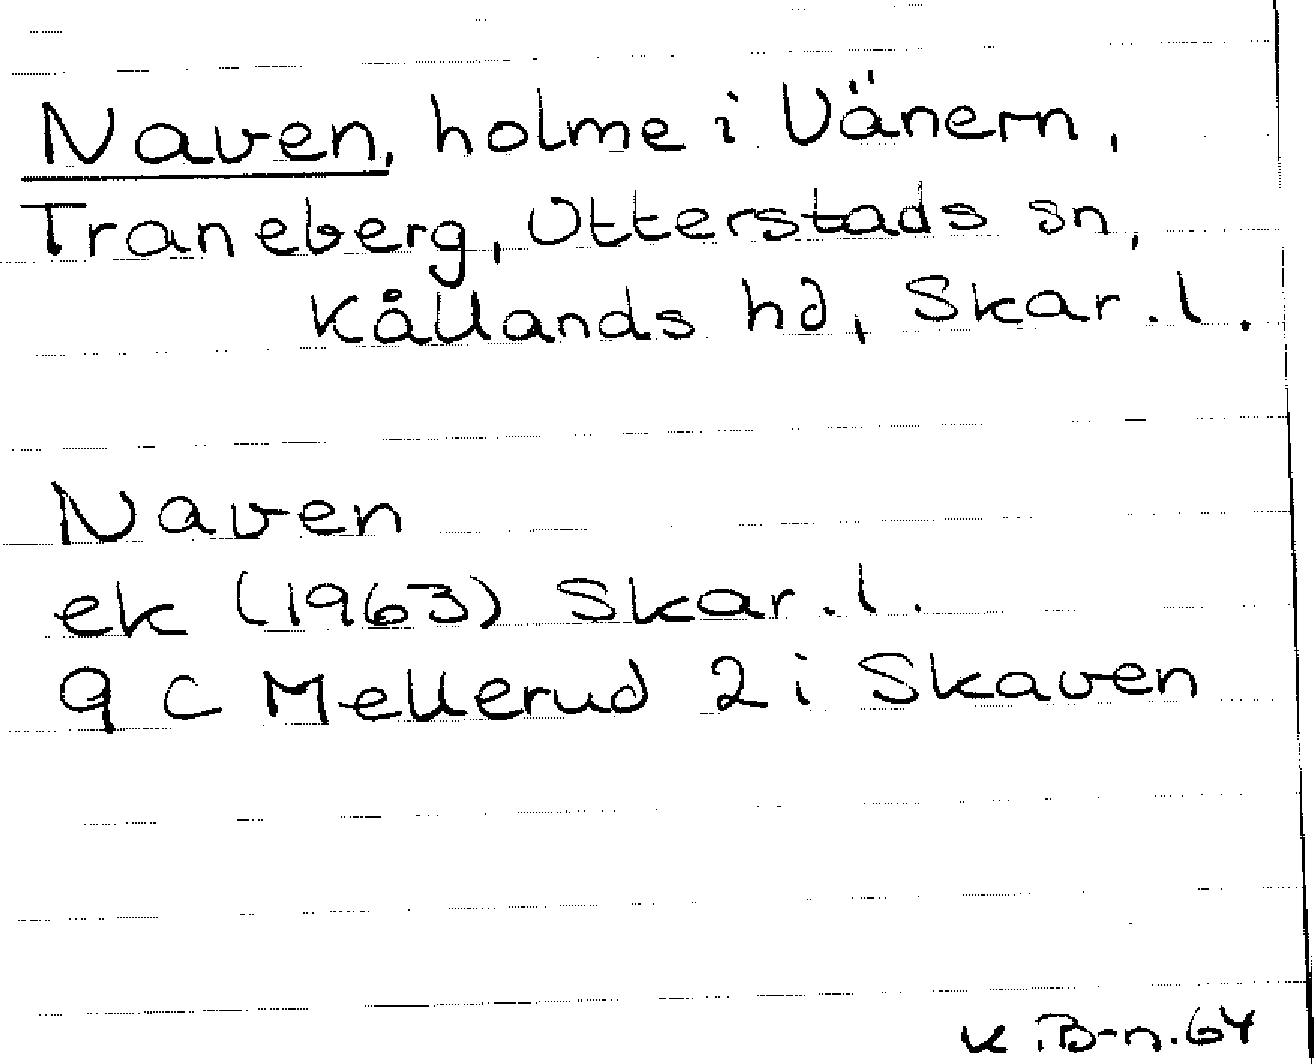 Naven, holme i Vänern,
Traneberg, Otterstads sn,
Kållands hd, Skar. l.
Naven
ek (1963) Skar. l.
9 C Mellerud 2 i Skaven
K. B-n. 64